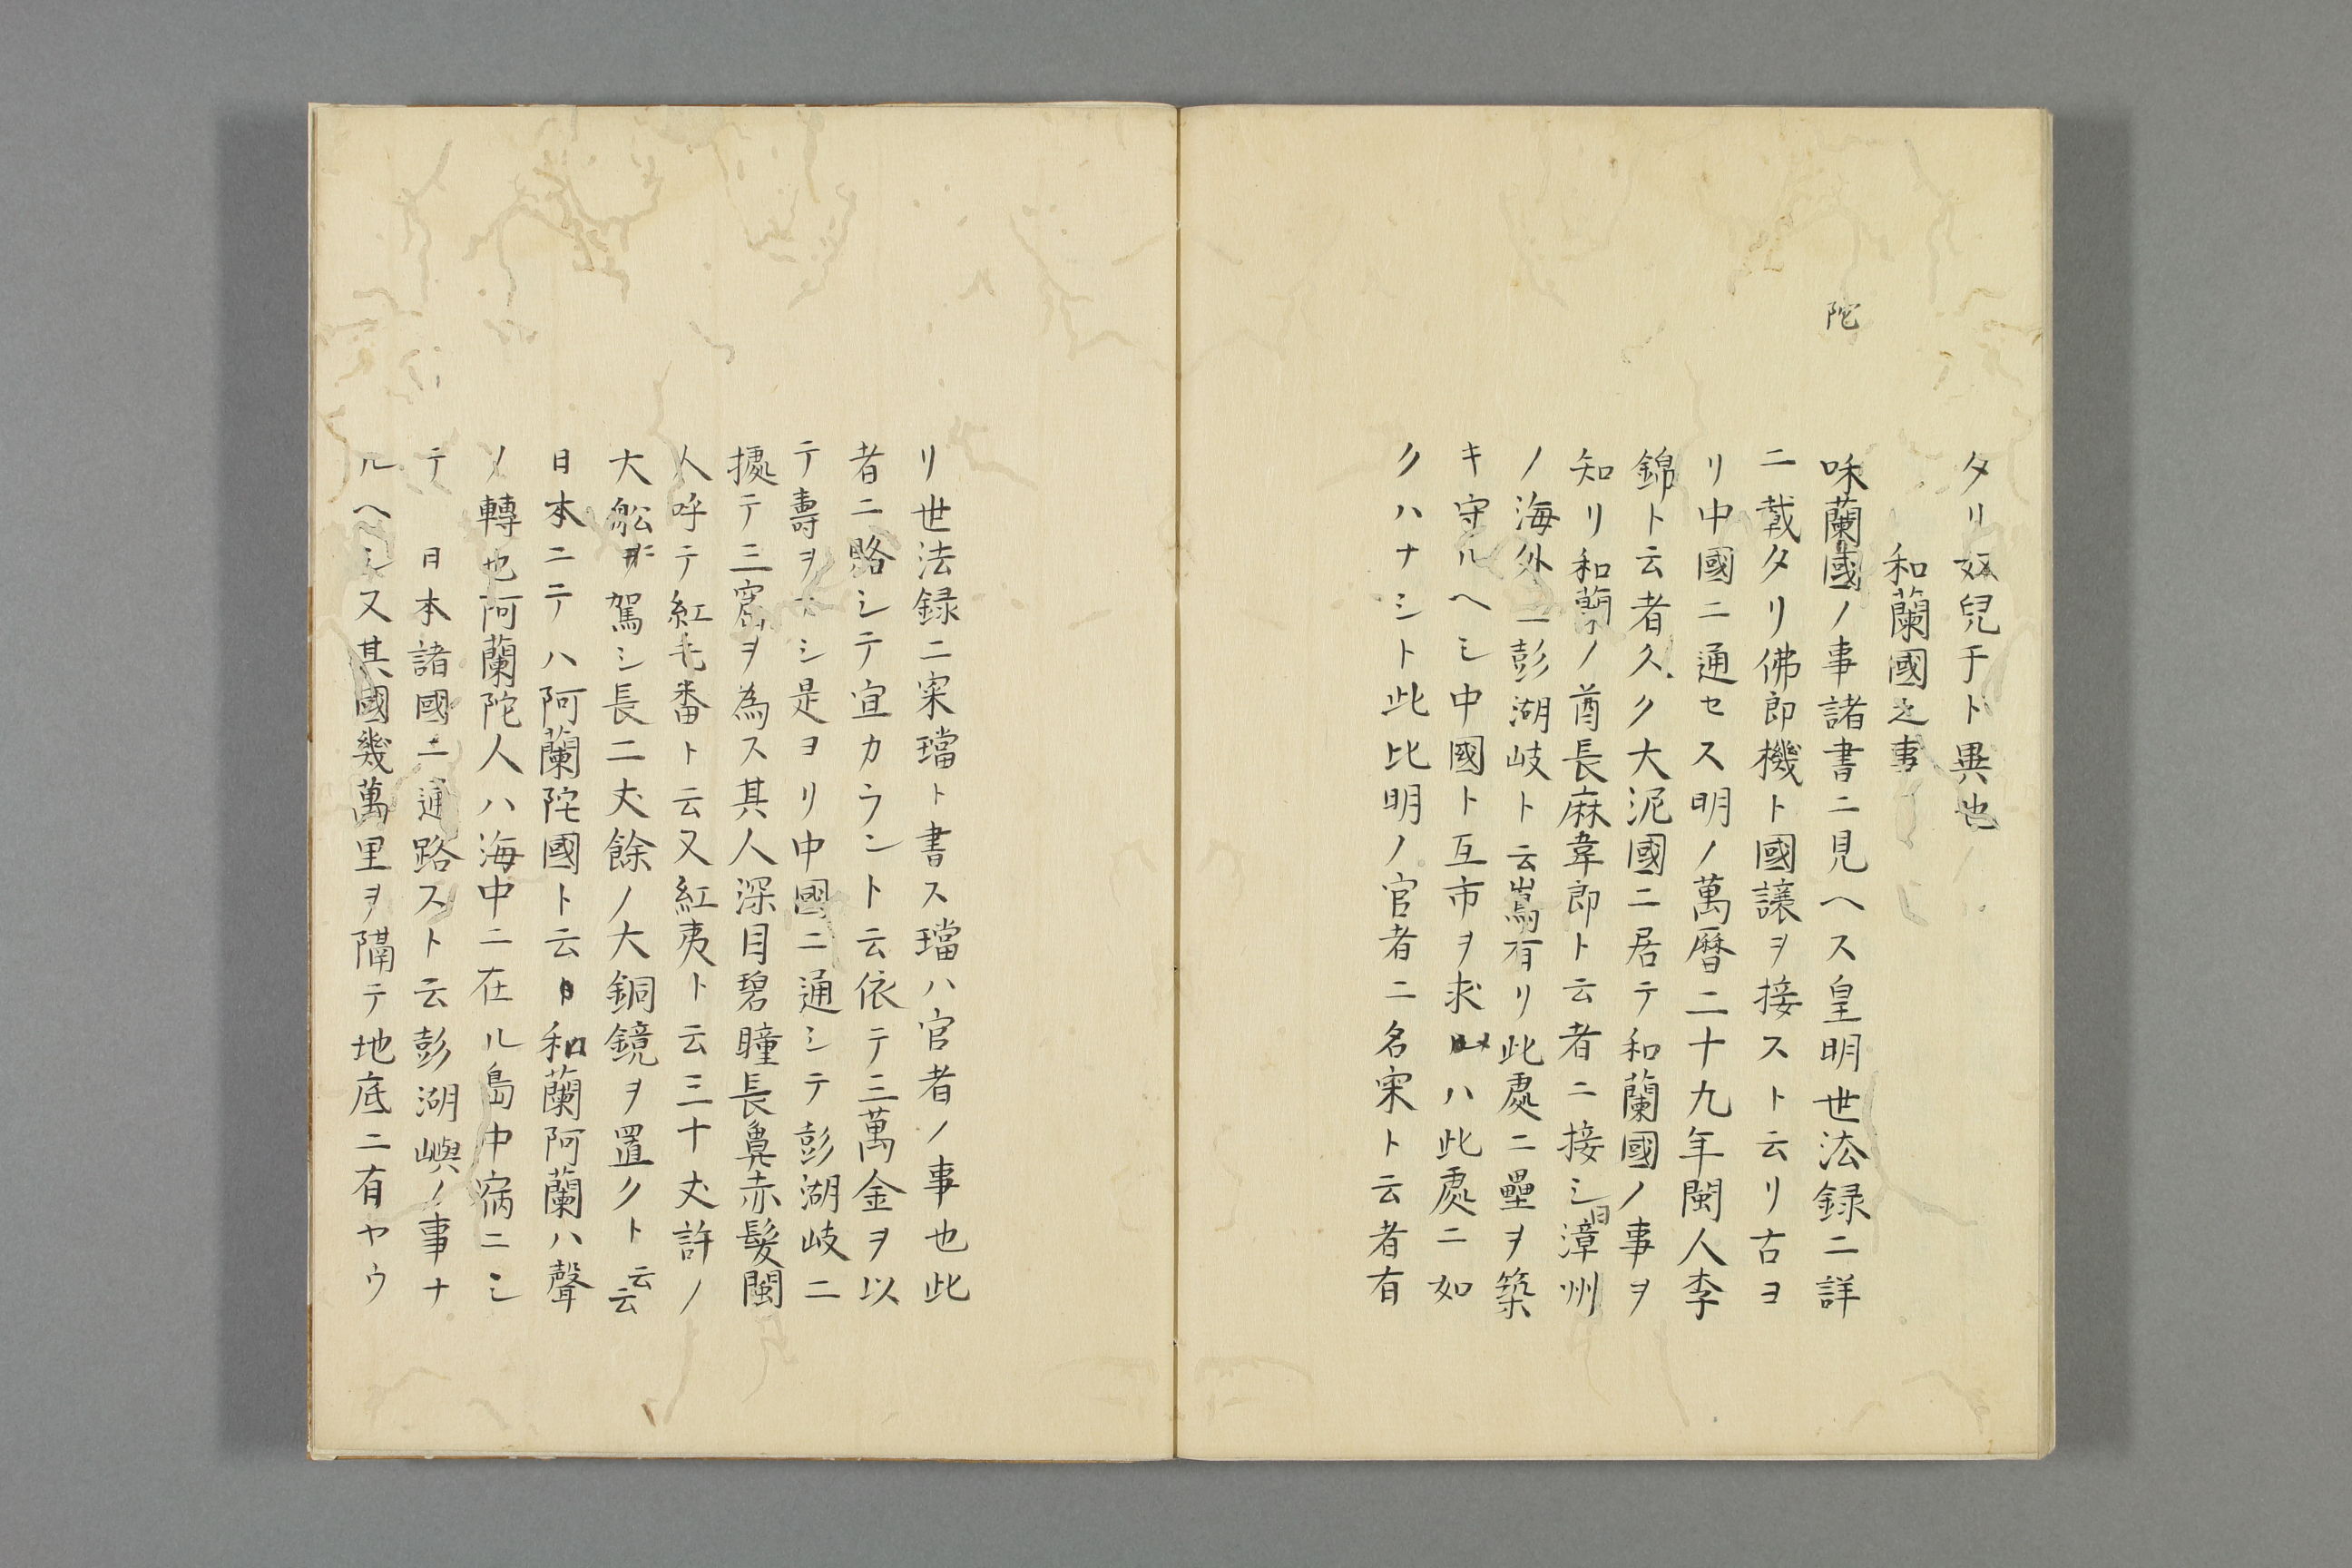 タリ奴兒干ト異也
和蘭國之事
陀
咊蘭國ノ事諸書ニ見ヘス皇明世法録ニ詳
ニ載タリ佛郎機ト國譲ヲ接スト云リ古ヨ
リ中國ニ通セス明ノ萬曆二十九年閩人李
錦ト云者久ク大泥國ニ居テ和蘭國ノ事ヲ
知リ和蘭ノ酋長麻韋郎ト云者ニ接シ曰漳州
ノ海外ニ彭湖岐ト云嶌有リ此處ニ壘ヲ築
キ守ルヘシ中國ト互市ヲ求メハ此處ニ如
クハナシト此比明ノ官者ニ名寀ト云者有
リ世法録ニ寀璫ト書ス璫ハ官者ノ事也此
者ニ賂シテ宣カラント云依テ三萬金ヲ以
テ壽ヲナシ是ヨリ中國ニ通シテ彭湖岐ニ
擾テ三窟ヲ為ス其人深目碧瞳長鼻赤髮閩
人呼テ紅毛番ト云又紅夷ト云三十丈許ノ
大舩ニ駕シ長二丈餘ノ大銅鏡ヲ置クト云云
日本ニテハ阿蘭陀國ト云和蘭阿蘭ハ聲
ノ轉也阿蘭陀人ハ海中ニ在ル島中病ニシ
テ 日本諸國ニ通路スト云彭湖嶼ノ事ナ
ルヘシ又其國幾萬里ヲ隔テ地底ニ有ヤウ